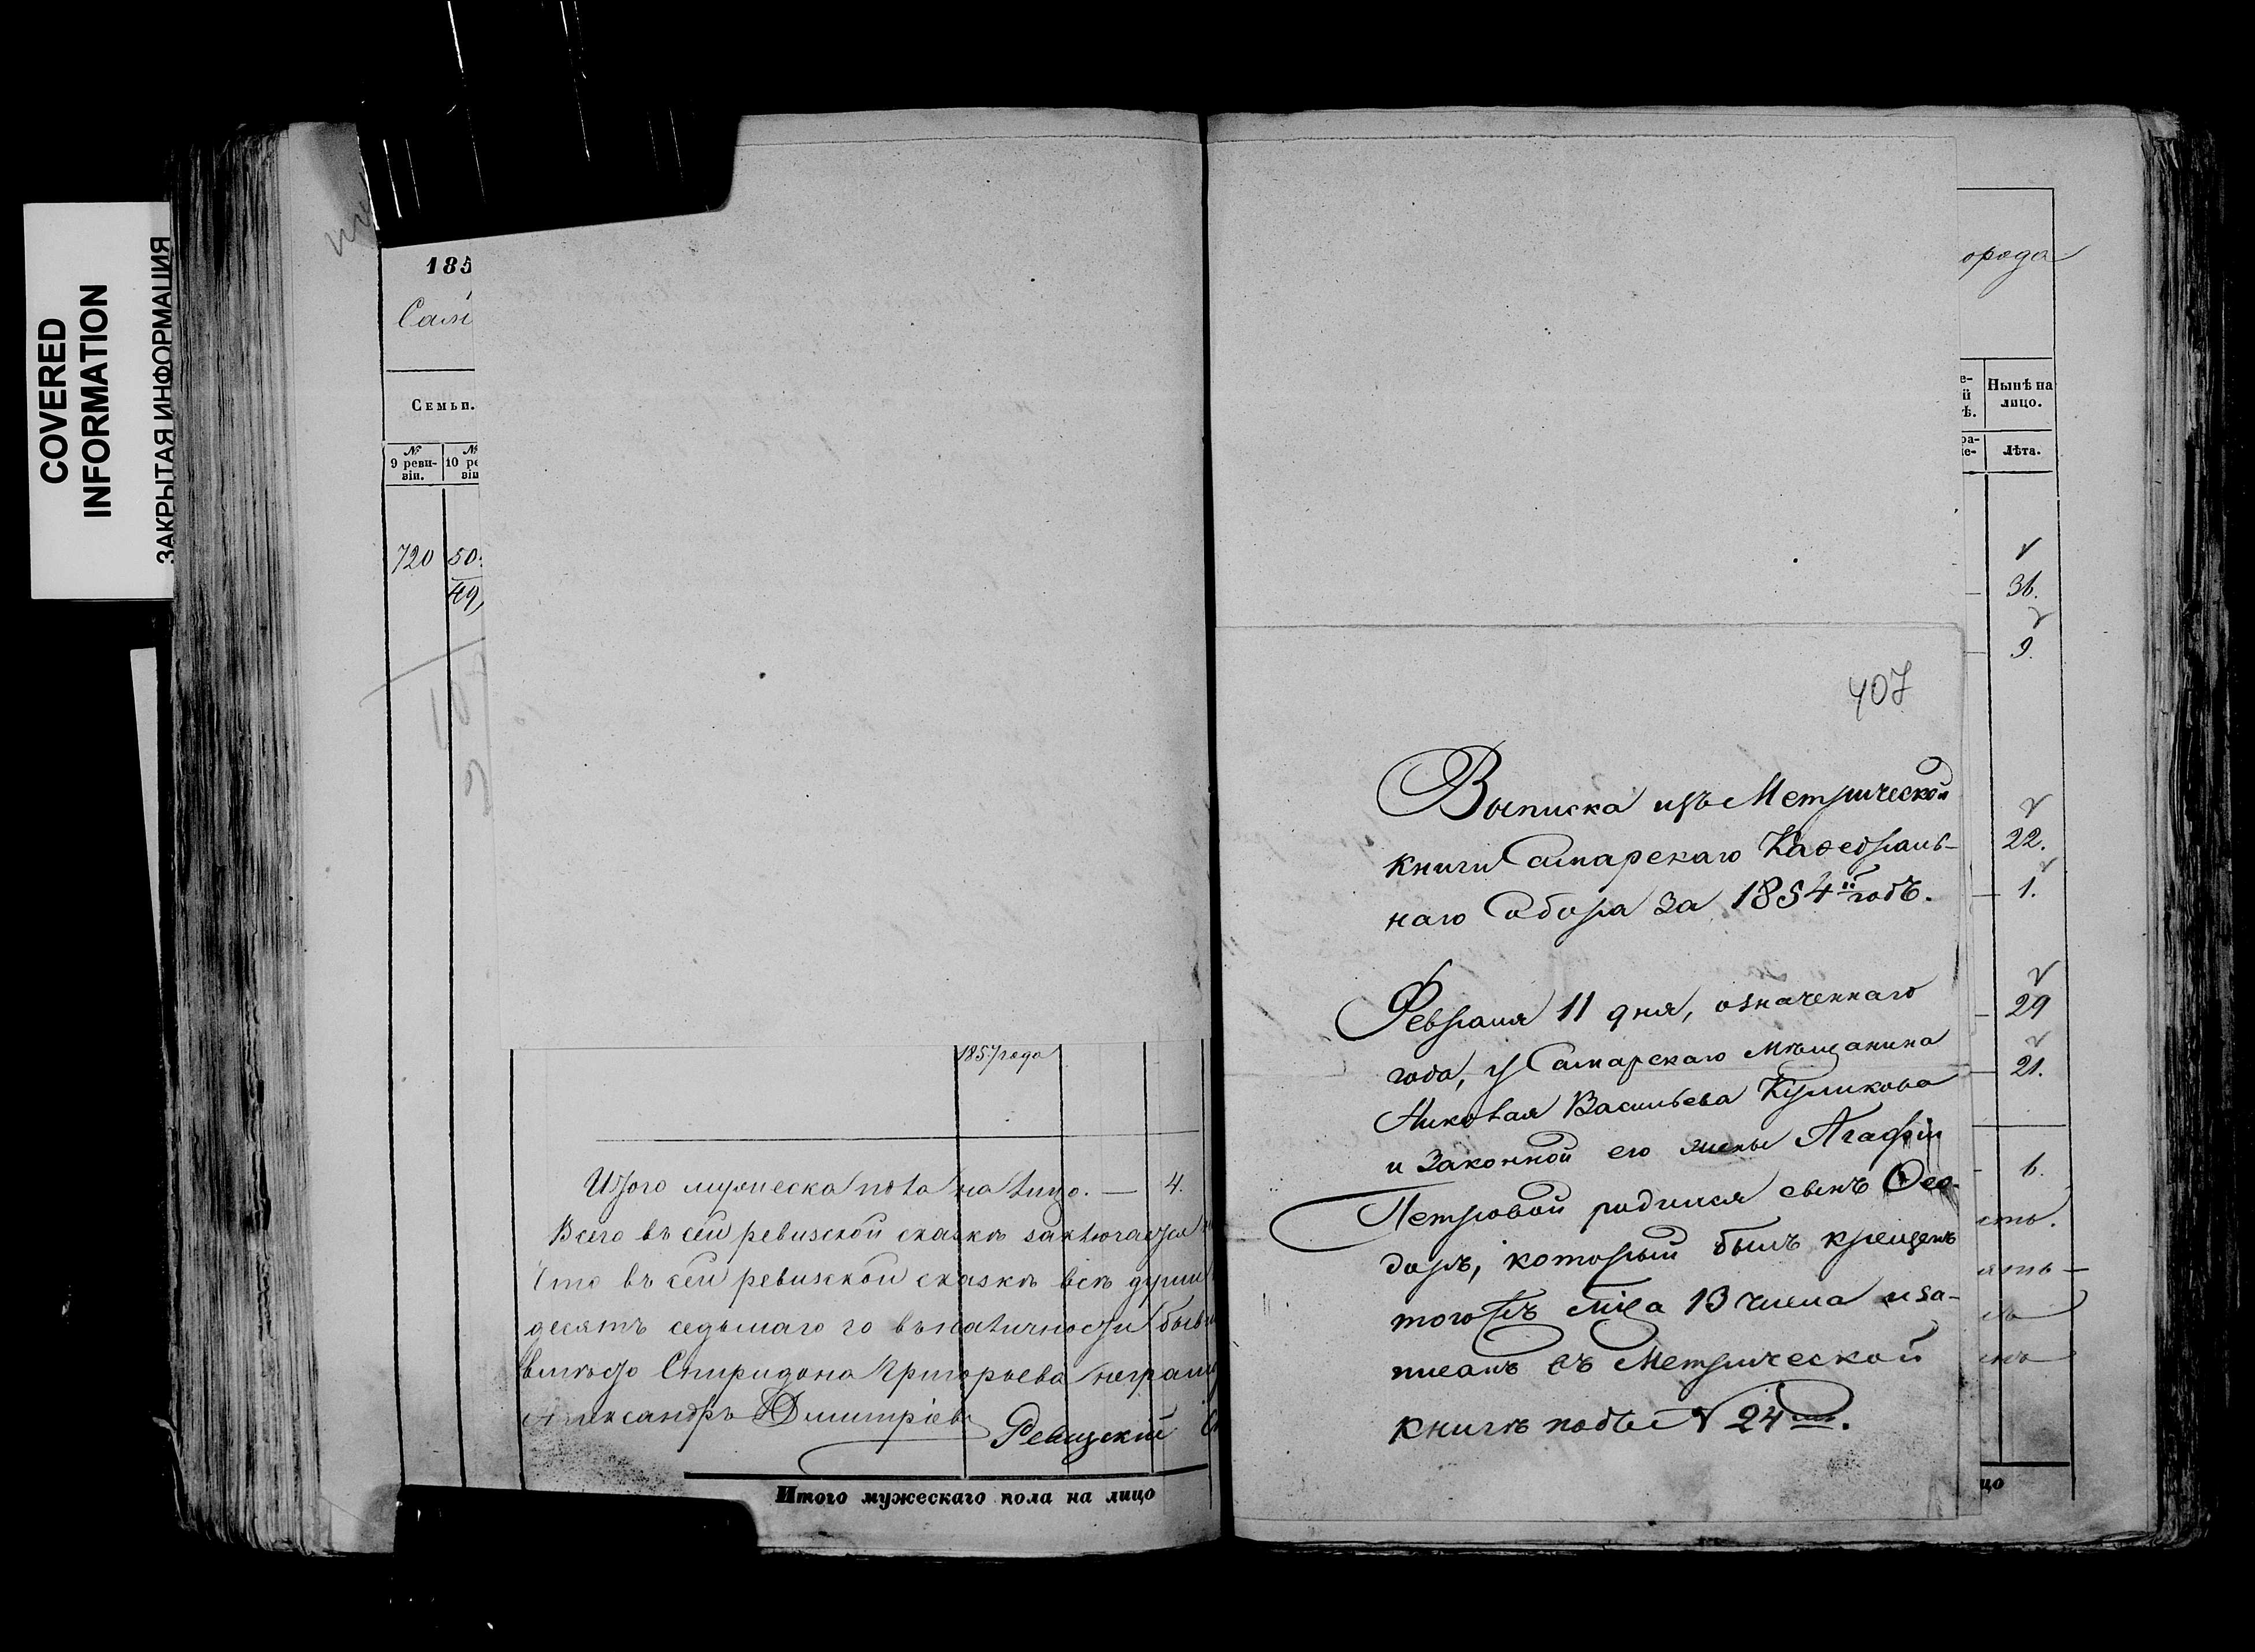 COVERED
INFORMATION
ЗАКРЫТАЯ ИНФОРМАЦИЯ
185
Сам
Семьи.
№ 9 реви-зіи.
№ 10 ре зіи
720
50
49
1857 года
Итого мужеска пола на лицо. — 4.
Всего въ сей ревизской сказкѣ заключается
Что въ сей ревизской сказкѣ всѣ души
десять седьмаго го въ наличности бывш
вмѣсто Спиридона Григорьева неграм
Александръ Димитріевъ
Итого мужескаго пола на лицо
407
Выписка изъ Метрической
книги Самарскаго Каѳедраль-
наго Собора за 1854й годъ.
Февраля 11 дня, означеннаго
года, у Самарскаго мѣщанина
Николая Васильева Куликова
и законной его жены Агафіи
Петровой родился сынъ Ѳео-
доръ, который былъ крещенъ
тогожъ мѣца 13 числа и за-
писанъ въ Метрической
книгѣ подъ № 24мъ.
орода
Нынѣ на
лицо.
Лѣта.
31.
9.
22.
1.
29
21.
6.
цо